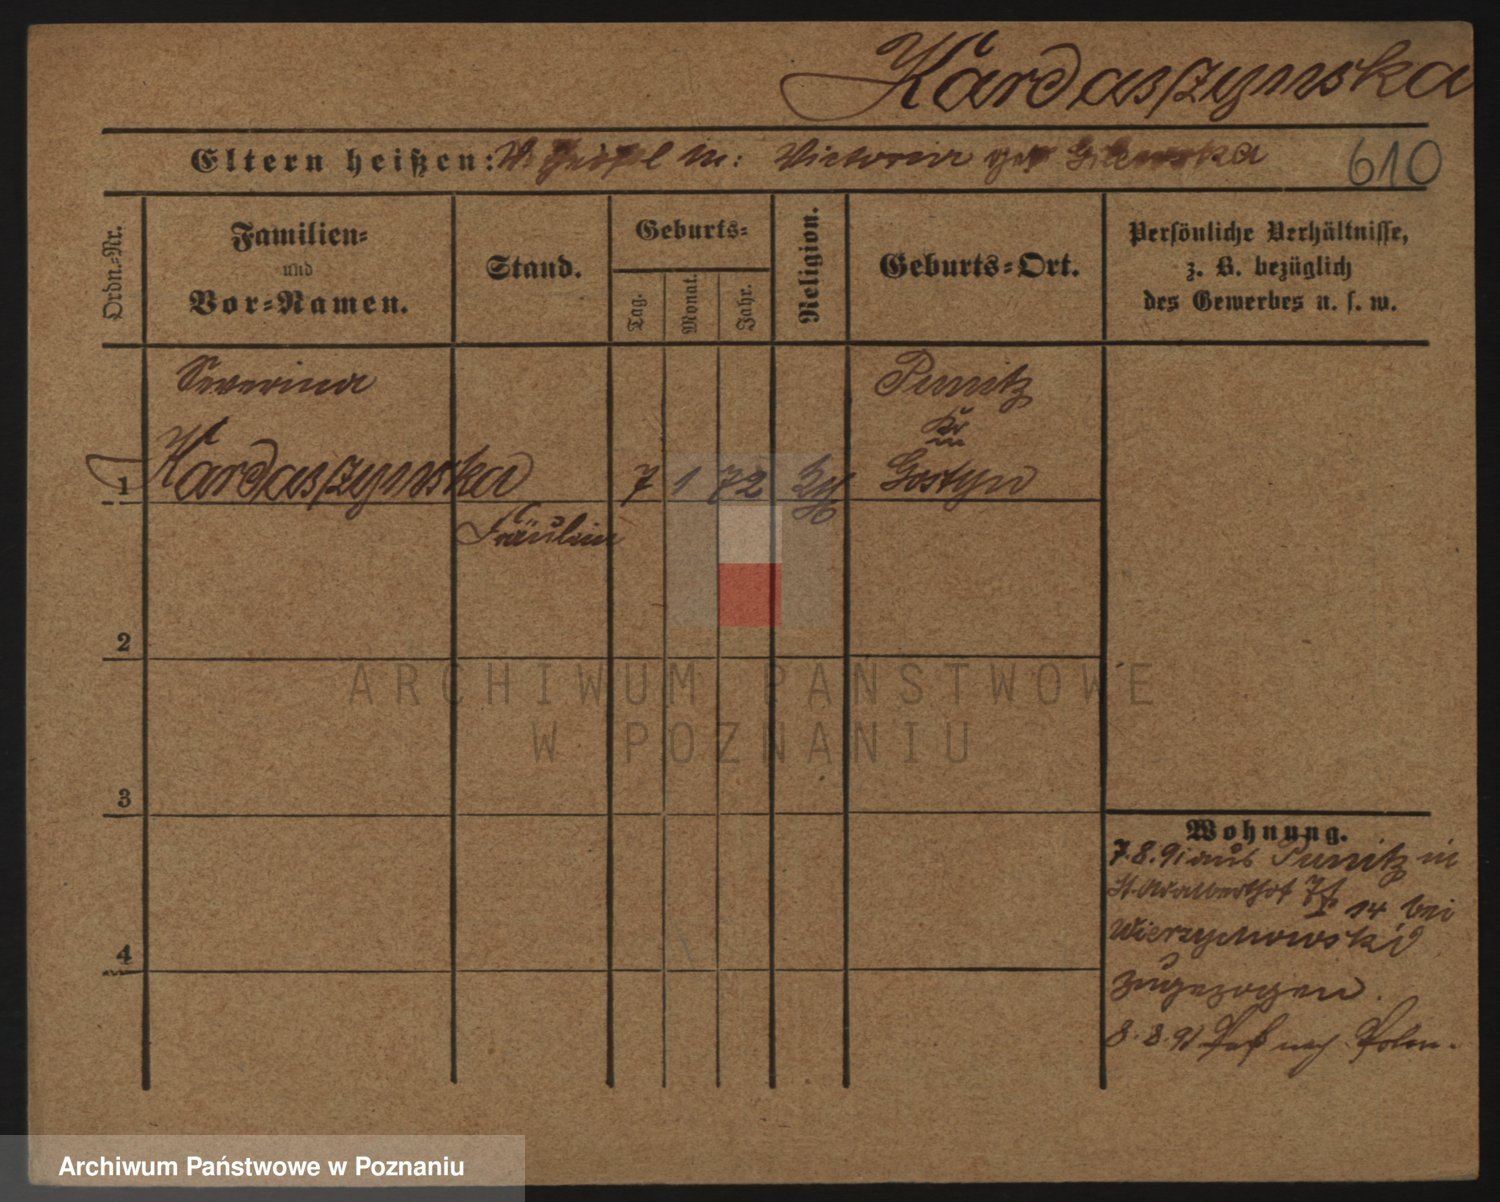 Kardaszynska
Eltern heißen: M: Victoria geb
610
Ordn.-Nr.
Familien-
und
Vor-Namen.
Stand.
Geburts-
Tag.
Monat.
Jahr.
Religion.
Geburts-Ort.
Persönliche Verhältnisse,
z. B. bezüglich
des Gewerbes u. s. w.
Severina
Punitz
Kr
Kardaszynska
1
7 1 72
Gostyn
Fräulein
2
ARCHIWUM PAŃSTWOWE
W POZNANIU
3
Wohnung.
7.8.91 aus Punitz in
St. Adalberthof 14 bei
Wierzychowski
zugezogen.
8.8.91 Paß nach Polen.
4
Archiwum Państwowe w Poznaniu